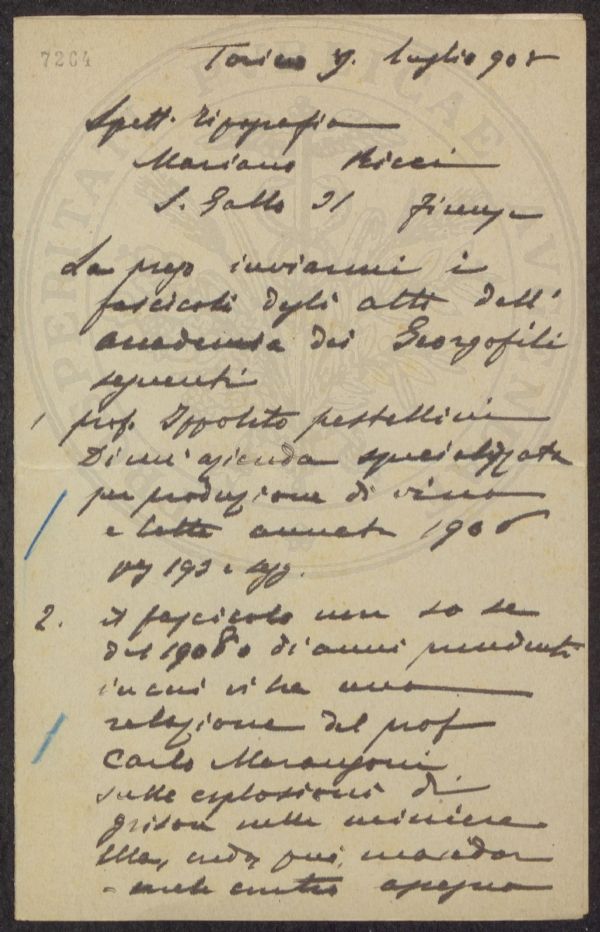 7264
Torino 9. luglio 908
Spett. Tipografia
Mariano Ricci
S. Gallo 31 Firenze
La prego inviarmi i
fascicoli degli atti dell'
accademia dei Georgofili
seguenti
1 prof. Ippolito pestellini
Di un' azienda specializzata
per produzione di vino
e latte annata 1908
pag 193 e segg.
2. il fascicolo non so se
del 1908 o di anni precedenti
in cui vi ha una
relazione del prof
Carlo Marangoni
sulle esplosioni di
grisou nelle miniere
Ella, può, mandar
mele contro assegno